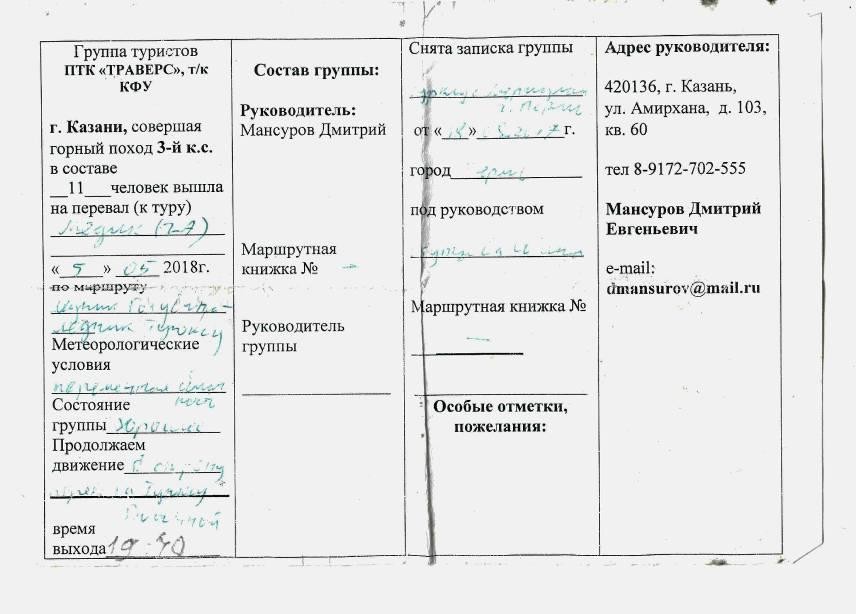 Группа туристов
ПТК «ТРАВЕРС», т/к
КФУ
г. Казани, совершая
горный поход 3-й к.с.
в составе
__11___человек вышла
на перевал (к туру)
« 5 » 05 2018г.
по маршруту
ледник
Метеорологические
условия
переменная
Состояние
группы хорошее
Продолжаем
движение в сторону
время
выхода 19:40
Состав группы:
Руководитель:
Мансуров Дмитрий
Маршрутная
книжка № –
Руководитель
группы
Снята записка группы
г. Перми
от « 18 » 7 г.
город
под руководством
Маршрутная книжка №
–
Особые отметки,
пожелания:
Адрес руководителя:
420136, г. Казань,
ул. Амирхана, д. 103,
кв. 60
тел 8-9172-702-555
Мансуров Дмитрий
Евгеньевич
e-mail:
dmansurov@mail.ru